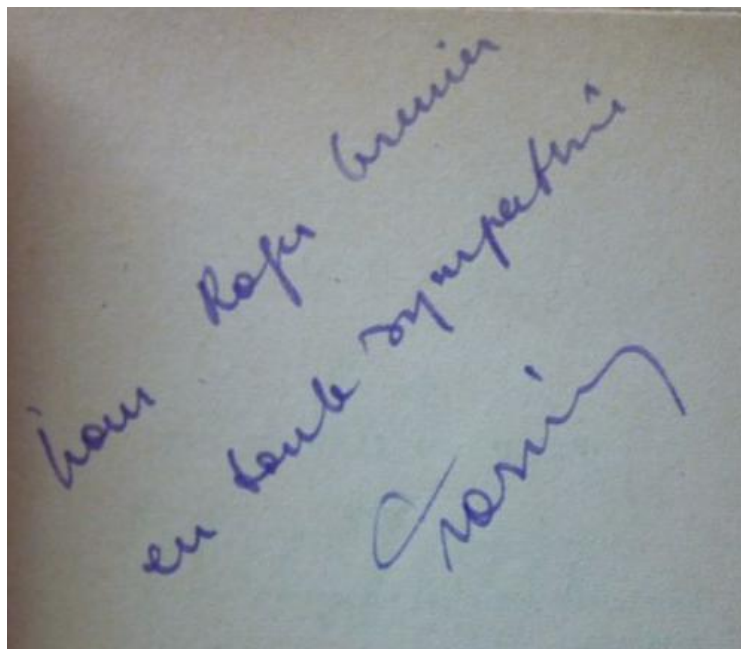 Pour Roger Grenier
en toute sympathie